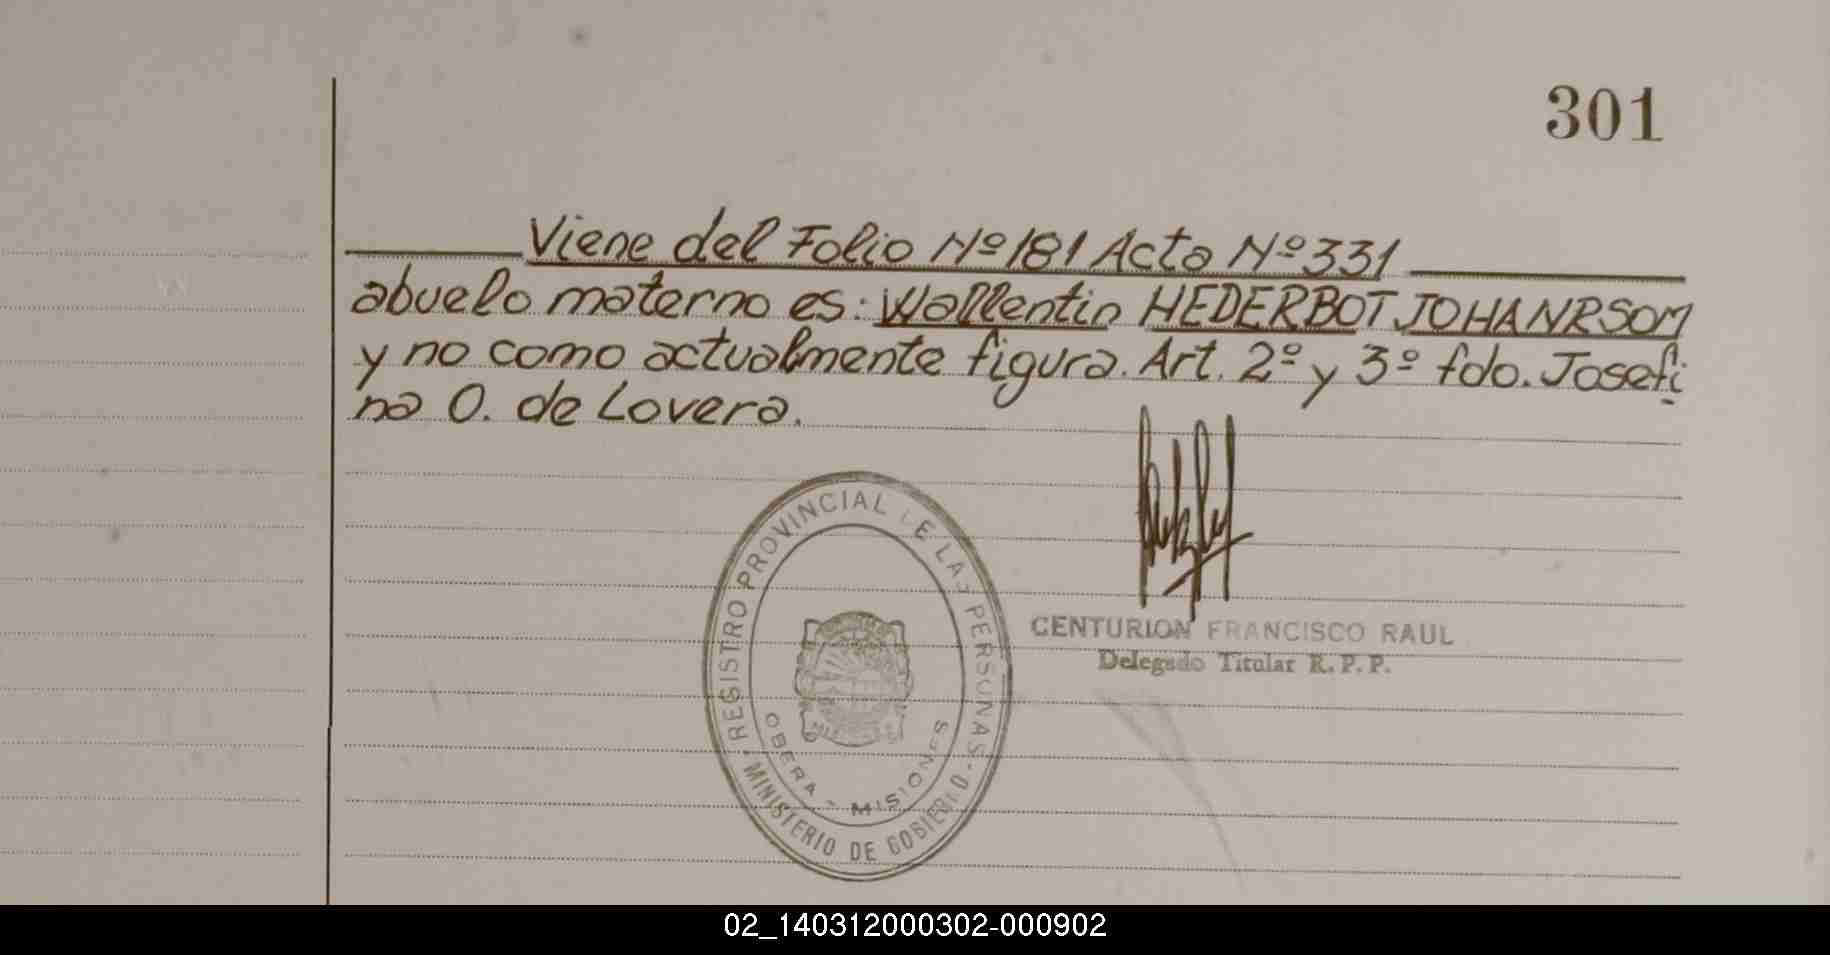 301
Viene del Folio Nº 181 Acta Nº 331
abuelo materno es: Wallentin HEDERBOT JOHANRSOM
y no como actualmente figura. Art. 2º y 3º fdo. Josefi
na O. de Lovera.
REGISTRO PROVINCIAL DE LAS PERSONAS
OBERA - MISIONES
MINISTERIO DE GOBIERNO
CENTURION FRANCISCO RAUL
Delegado Titular R. P. P.
02_140312000302-000902